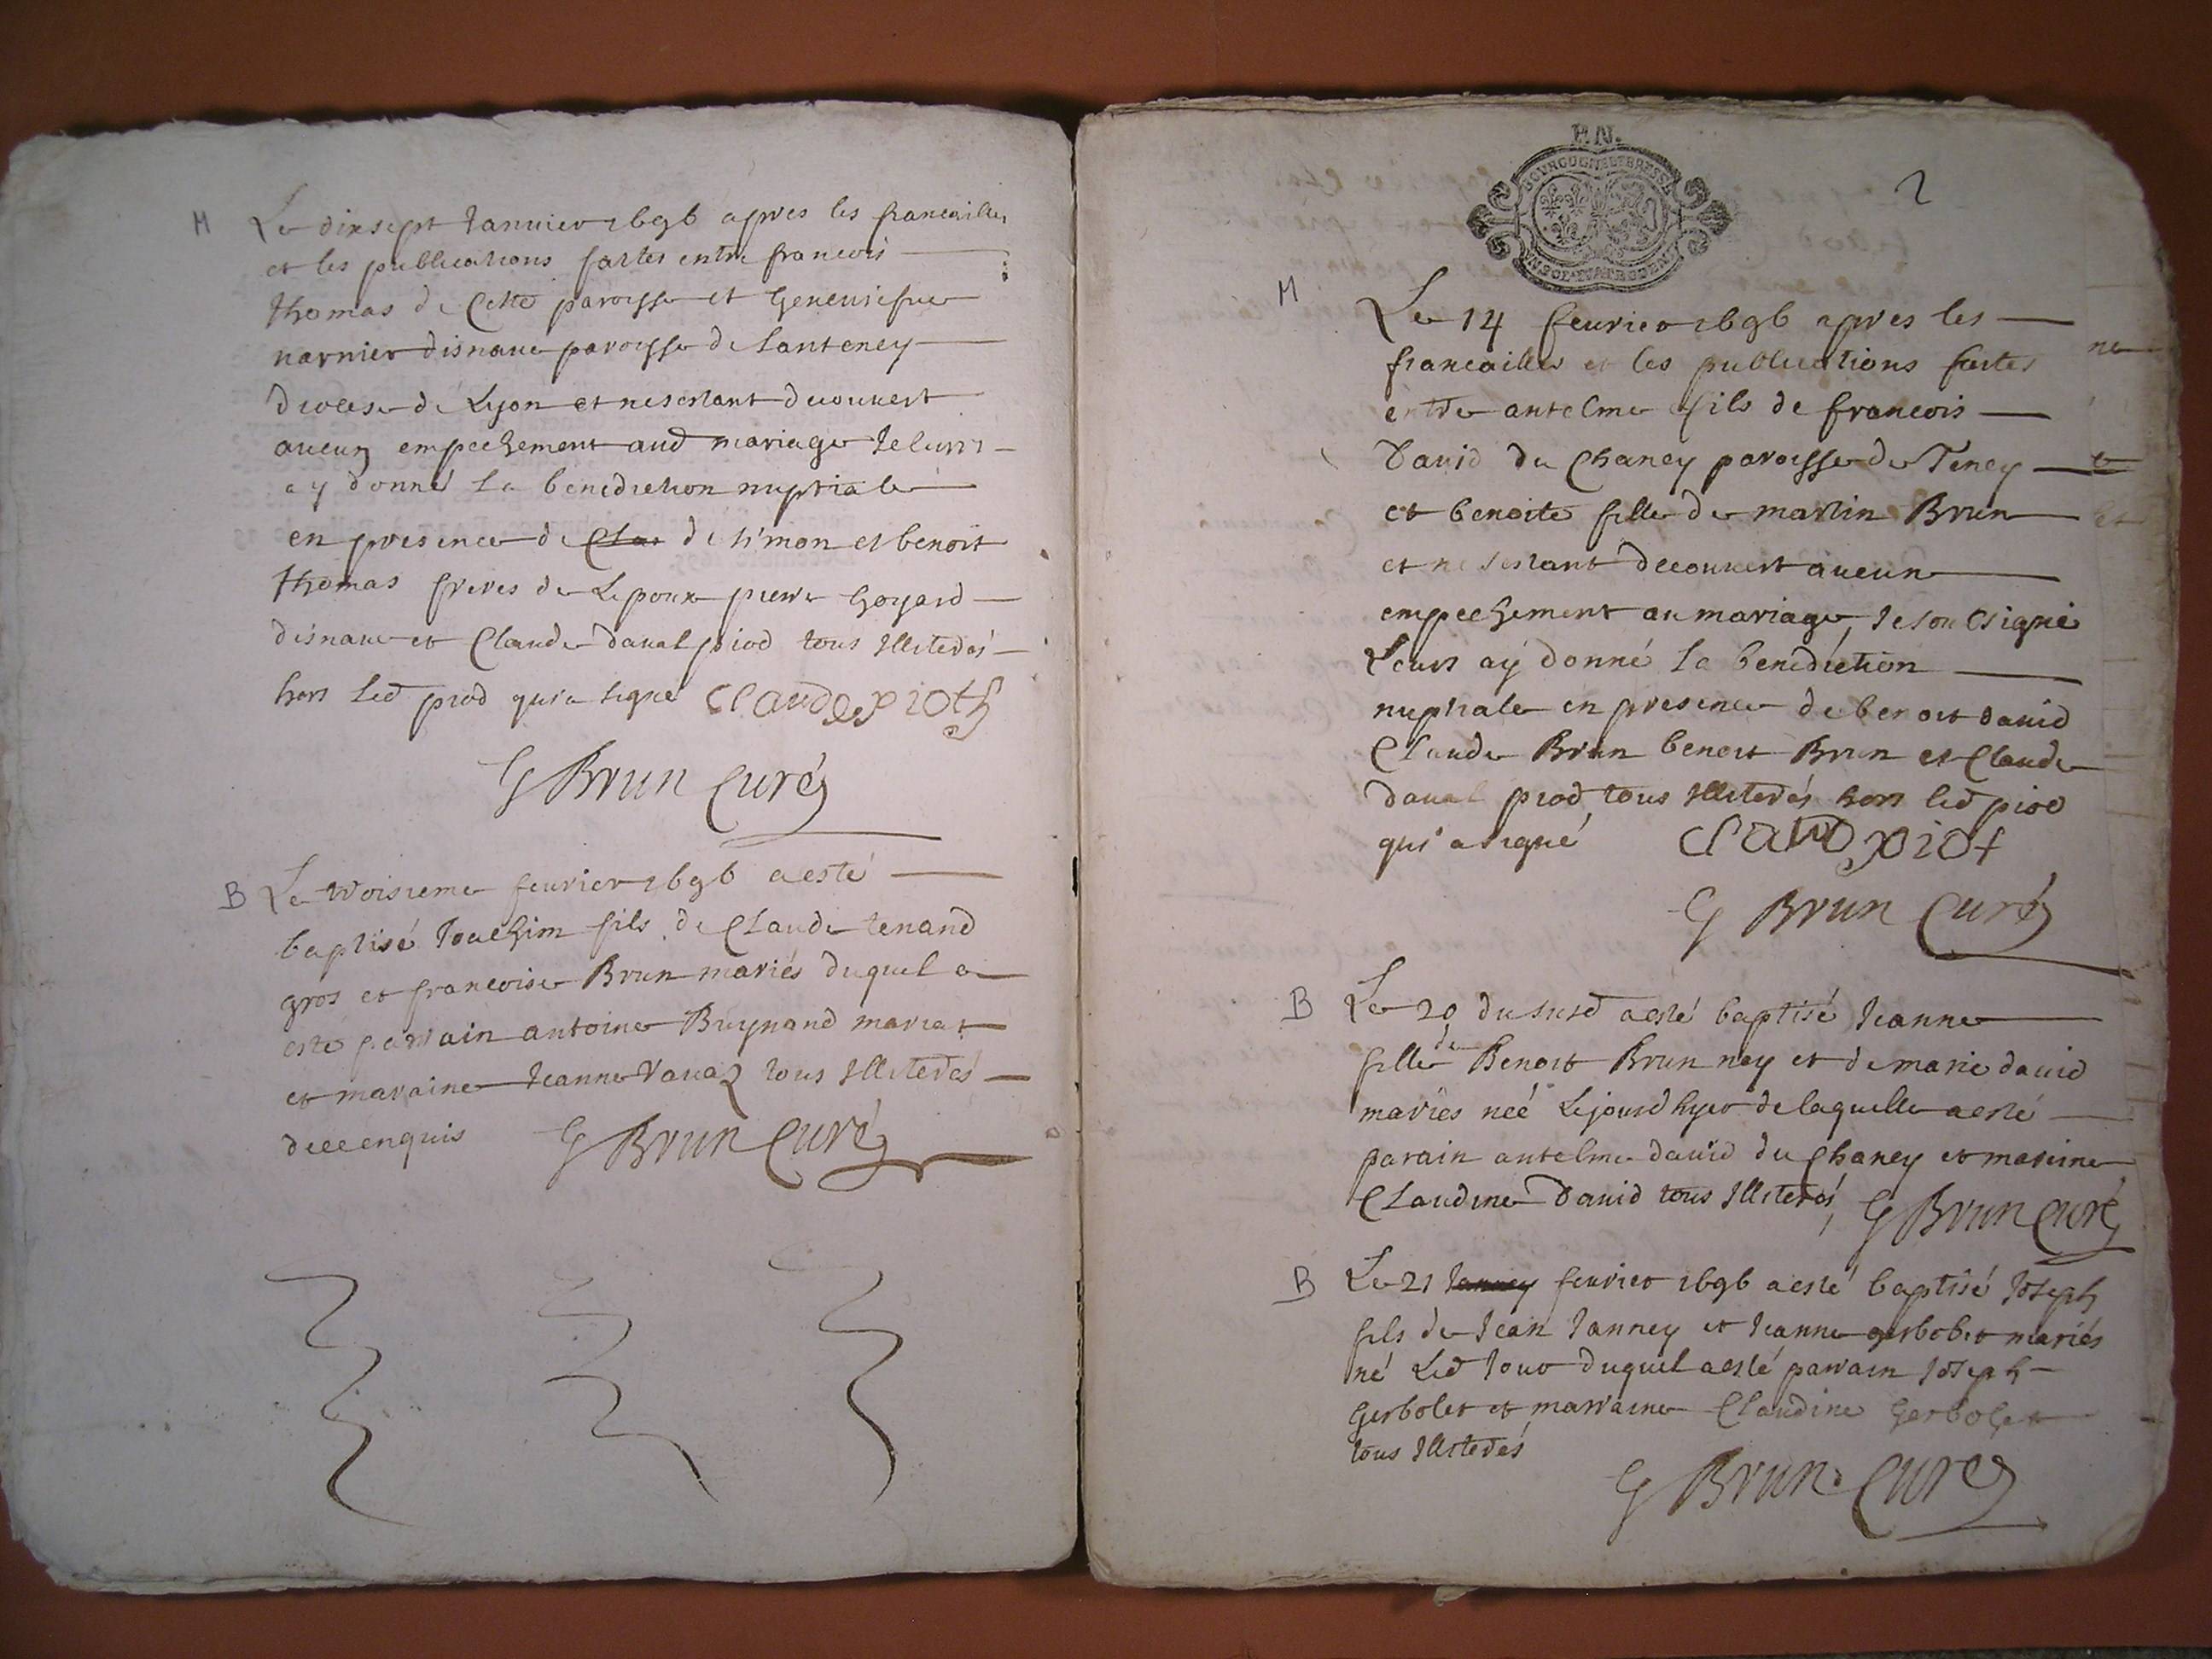 M
Le dixsept Januier 1696 apres les fiancailles
et les publications faites entre francois
thomas de Cette paroisse et Geneuiefue
narnier disnaue paroisse de Lanteney
diocese de Lyon et ne sestant decouuert
aucun empechement aud mariage Je leurs
ay donné La benediction nuptiale
en presence de Clau de simon et benoit
thomas freres de Lepoux pierre hoyard
disnaue et Claude daual piod tous Illiterés
hors Led piod qui a signé Claude pioth
G Brun Curé
B
Le troisieme feurier 1696 a esté
baptisé Joachim fils de Claude tenand
gros et francoise Brun mariés duquel a
esté parrain antoine Buynand
et maraine Jeanne Vauaz tous Illiterés
de ce enquis G Brun Curé
F.N.
BOURGOGNE ET BRESSE
2
M
Le 14 feurier 1696 apres les
fiancailles et les publications faites
entre antelme fils de francois
Dauid du Chaney paroisse de Teney
et benoite fille de martin Brun
et ne sestant decouuert aucun
empechement au mariage, Je soubsigné
Leurs ay donné la benediction
nuptiale en presence de benoit dauid
Claude Brun benoit Brun et Claude
daual piod tous Illiterés hors led piod
qui a signé Claud piot
G Brun Curé
B
Le 20 du susd a esté baptisé Jeanne
fille de Benoit Brun ney et de marie dauid
mariés neé Le jourd hyer de laquelle a esté
parain antelme dauid du Chaney et maraine
Claudine Dauid tous Illiterés G Brun Curé
B
Le 21 Janney feurier 1696 a esté baptisé Joseph
fils de Jean Janney et Jeanne gerbolet mariés
né Led Jour duquel a esté parrain Joseph
Gerbolet et marraine Claudine Gerbolet
tous Illiterés
G Brun Curé